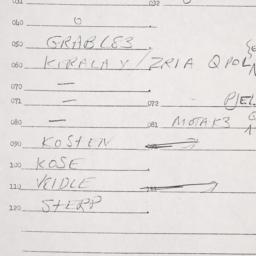 040 0
050 GRABLES
060 KIRALAY / ZRIA Q POL
070 —
071 — 072 - PJEL
080 — 081 MOTAK3
090 KOSTEN
100 KOSE
110 VEIDLE
120 STEPP